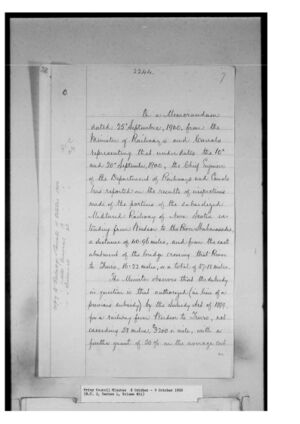 2244
7
On a Memorandum
dated 25th September, 1900, from the
Minister of Railways and Canals
representing that under dates the 10th
and 20th September, 1900, the Chief Engineer
of the Department of Railways and Canals
has reported on the results of inspections
made of the portion of the subsidized
Midland Railway of Nova Scotia ex-
tending from Windsor to the River Shubenacadie,
a distance of 40.96 miles, and from the east
abutment of the bridge crossing that River
to Truro, 16.22 miles, or a total of 57.18 miles.
The Minister observes that the subsidy
in question is that authorized (as lieu of a
previous subsidy) by the Subsidy Act of
for a railway from Windsor to Truro, not
exceeding 58 miles, $3200 a mile, with a
further grant of 50 % on the average cost
Privy Council Minutes 4 October - 9 October 1900
(R.G. 2, Series 1, Volume